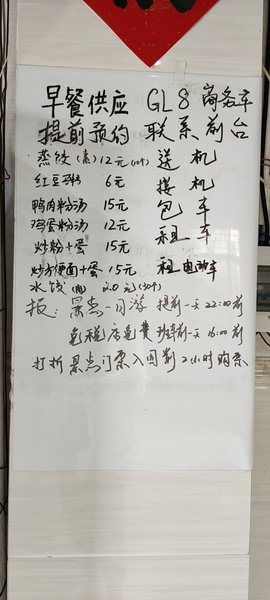 早餐供应 GL8商务车
提前预约 联系前台
蒸饺(素)12元(10个) 送机
红豆粥 6元 接机
鸭肉粉汤 15元 包车
鸡蛋粉汤 12元 租车
炒粉+蛋 15元
炒方便面+蛋 15元 租电动车
水饺(肉) 20元(30个)
报:景点一日游 提前一天22:00前
免税店免费班车前一天16:00前
打折景点门票入园前2小时购票